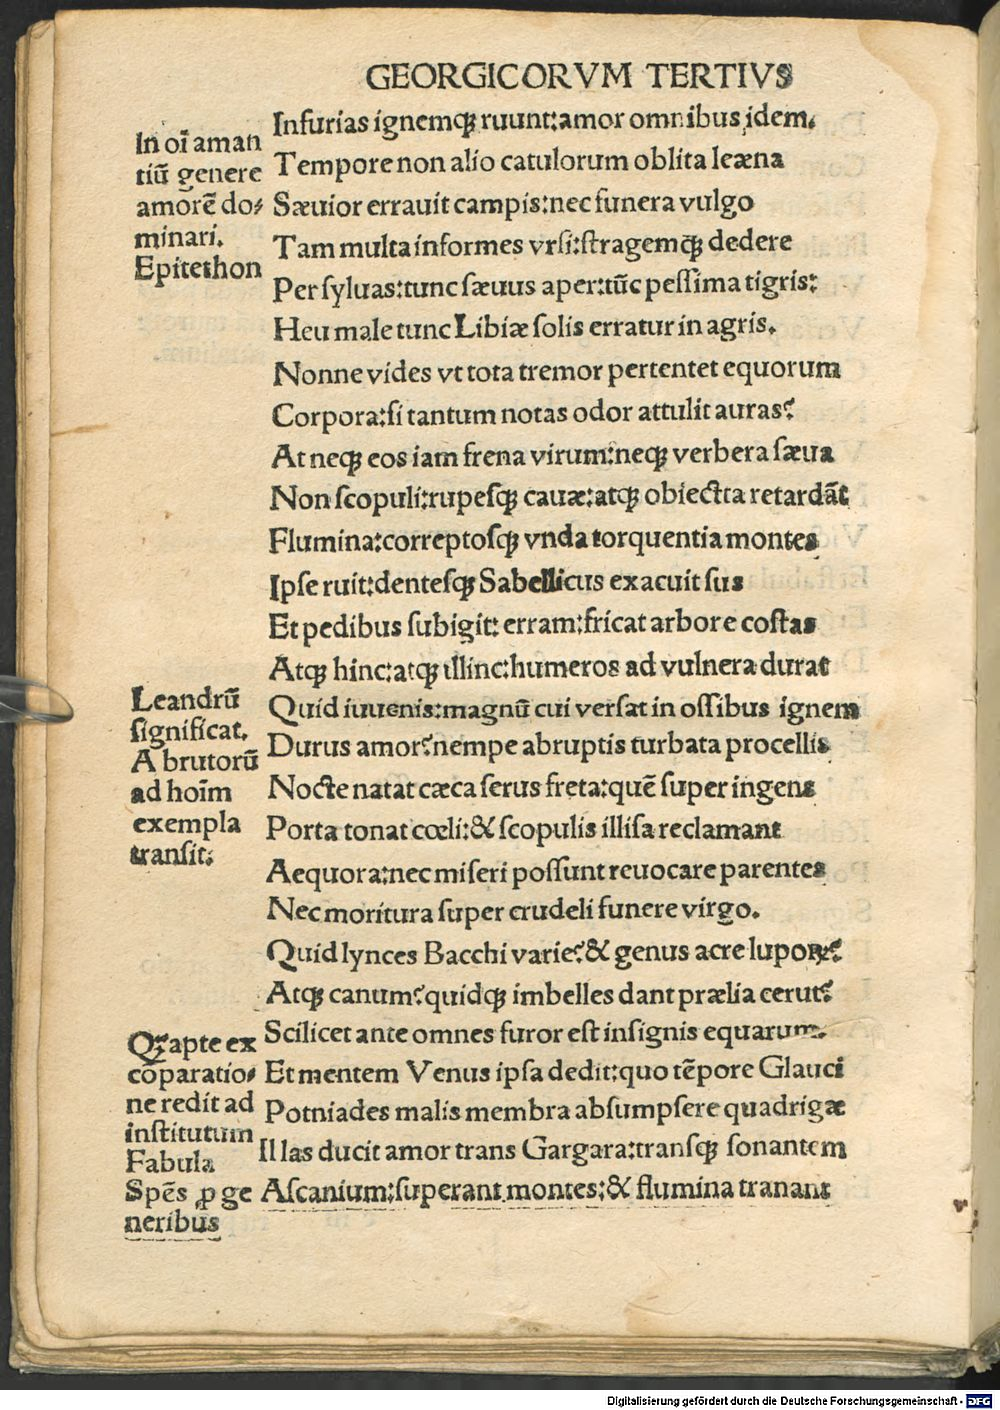 GEORGICORVM TERTIVS
In oī aman
tiū genere
amorē do⸗
minari.
Epitethon
Infurias ignemqꝫ ruunt:amor omnibus idem.
Tempore non alio catulorum oblita leæna
Sæuior errauit campis:nec funera vulgo
Tam multa informes vrsi:stragemqꝫ dedere
Per syluas:tunc sæuus aper:tūc pessima tigris:
Heu male tunc Libiæ solis erratur in agris.
Nonne vides vt tota tremor pertentet equorum
Corpora:si tantum notas odor attulit auras?
At neqꝫ eos iam frena virum:neqꝫ verbera sæua
Non scopuli:rupesqꝫ cauæ:atqꝫ obiectta retardāt
Flumina:correptosqꝫ vnda torquentia montes
Ipse ruit:dentesqꝫ Sabellicus exacuit sus
Et pedibus subigit: erram:fricat arbore costas
Atqꝫ hinc:atqꝫ illinc:humeros ad vulnera durat
Leandrū
significat.
A brutorū
ad hoīm
exempla
transit.
Quid iuuenis:magnū cui versat in ossibus ignem
Durus amor?nempe abruptis turbata procellis
Nocte natat cæca serus freta:quē super ingens
Porta tonat cœli:& scopulis illisa reclamant
Aequora:nec miseri possunt reuocare parentes
Nec moritura super crudeli funere virgo.
Quid lynces Bacchi varie?& genus acre lupoꝝ?
Atqꝫ canum?quidqꝫ imbelles dant prælia cerut?
Scilicet ante omnes furor est insignis equarum.
Et mentem Venus ipsa dedit:quo tēpore Glauci
Potniades malis membra absumpsere quadrigæ
Illas ducit amor trans Gargara:transqꝫ sonantem
Ascanium:superant montes:& flumina tranant
Qꝫ apte ex
cōparatio⸗
ne redit ad
institutum
Fabula
Spēs ꝓ ge
neribus
Digitalisierung gefördert durch die Deutsche Forschungsgemeinschaft - DFG